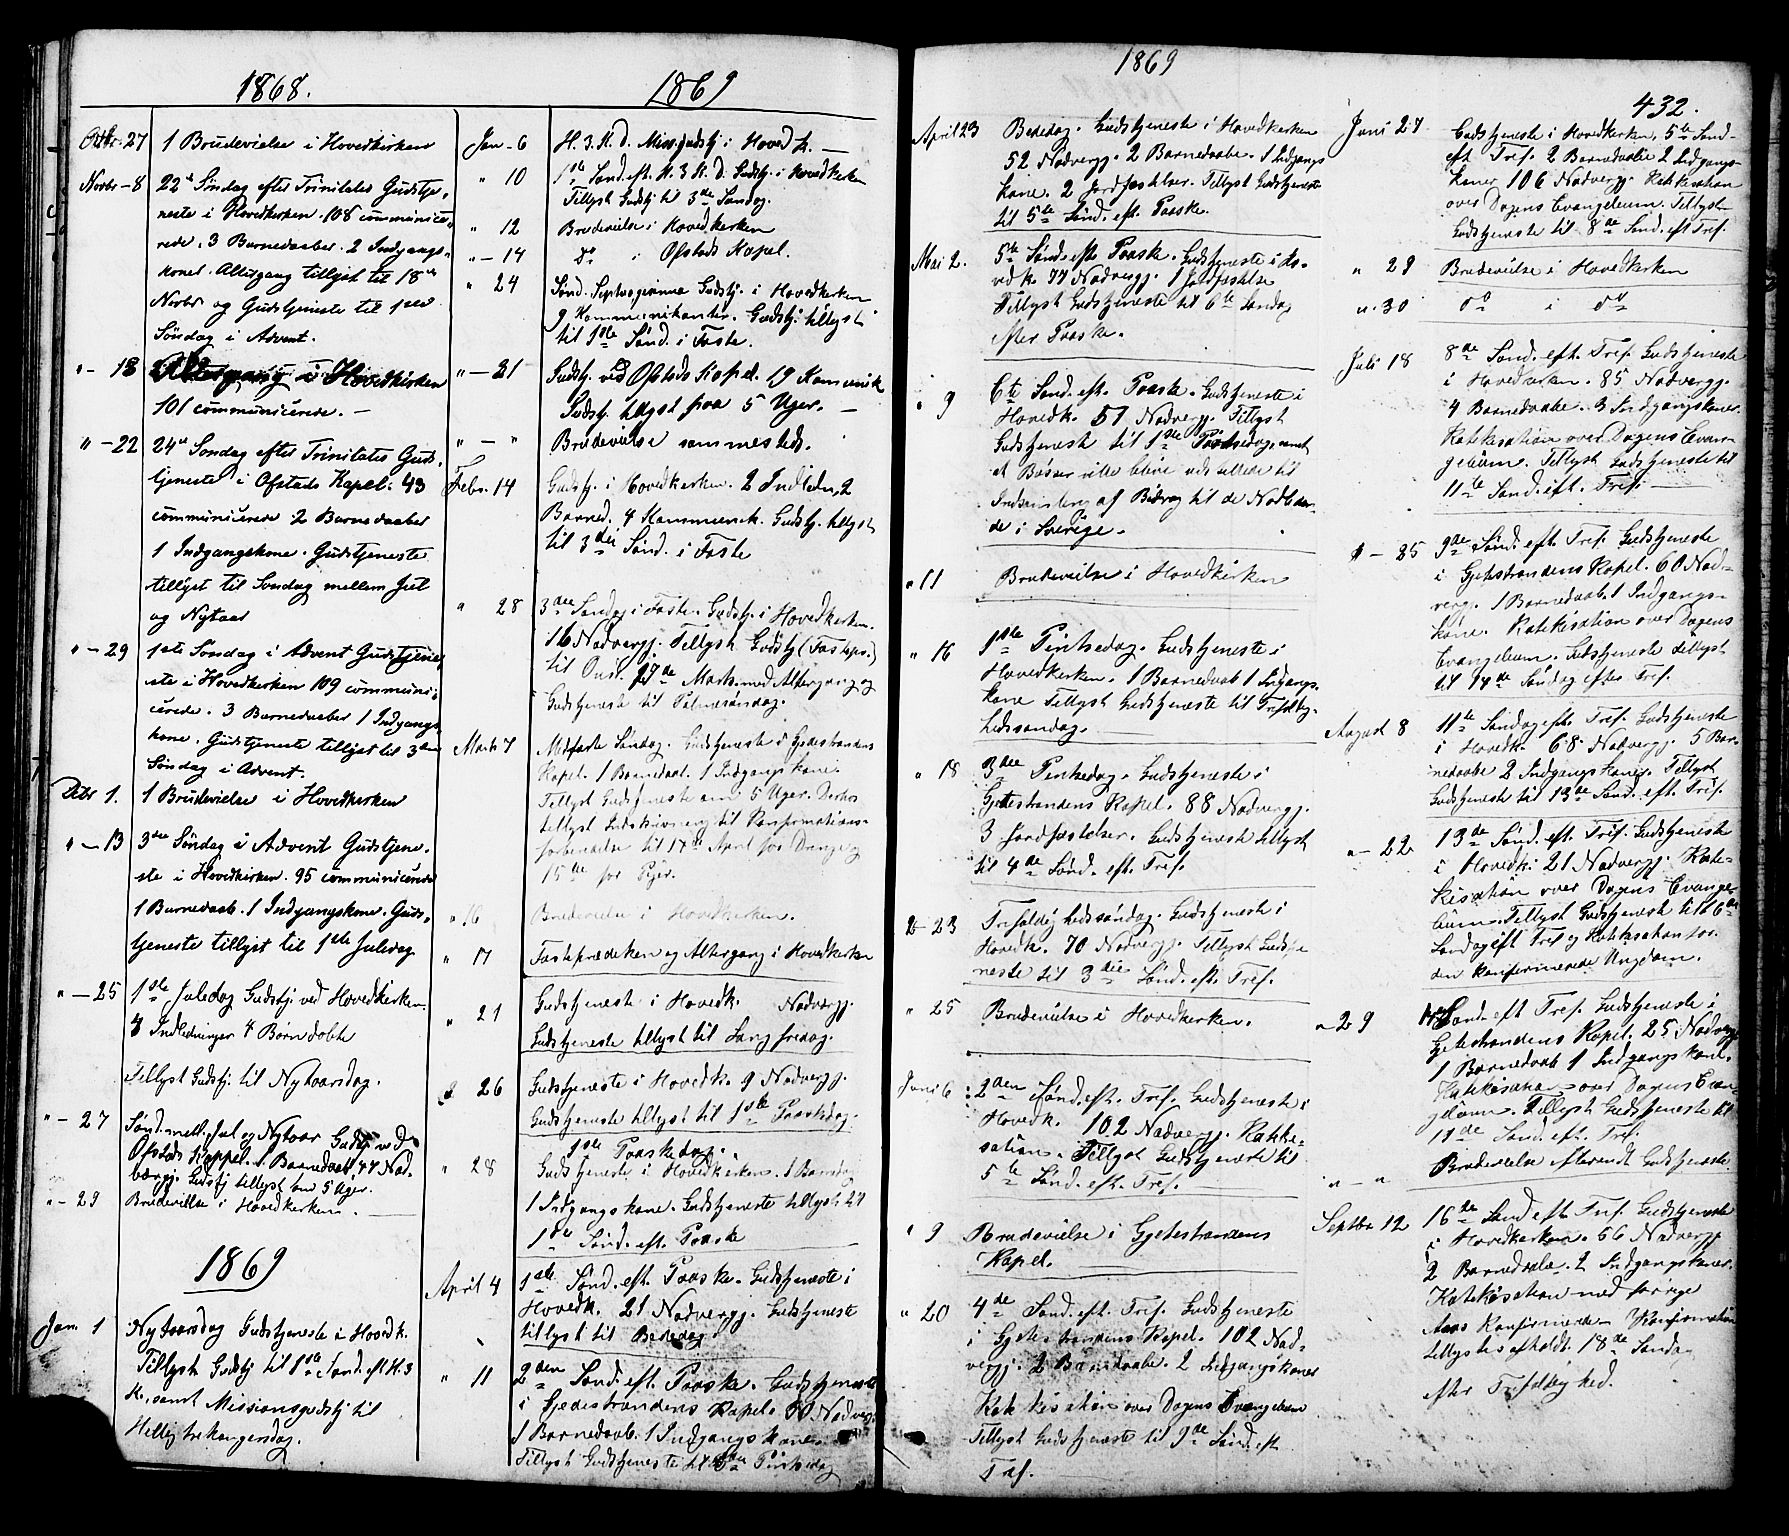 1868.
Octbr. 27 1 Brudevielse i Hovedkirken
Novbr - 8 22de Søndag efter Trinitatis Gudstje-
neste i Hovedkirken. 108 communice-
rede. 3 Barnedaaber. 2 Indgangs-
koner. Altergang tillyst til 18de
Novbr og Gudstjeneste til 1ste
Søndag i Advent.
" - 18 Altergang i Hovedkirken
101 communicerede. -
" - 22 24de Søndag efter Trinitatis Guds-
tjeneste i Ofstads Kapel. 43
communicerede 2 Barnedaaber
1 Indgangskone. Gudstjeneste
tillyst til Søndag mellem Jul
og Nytaar
" - 29 1ste Søndag i Advent Gudstjene-
ste i Hovedkirken 109 communi-
cerede. 3 Barnedaaber 1 Indgangs-
kone. Gudstjeneste tillyst til 3die
Søndag i Advent.
Debr 1. 1 Brudevielse i Hovedkirken
" - 13 3die Søndag i Advent Gudstjene-
ste i Hovedkirken. 95 communicerede
1 Barnedaab. 1 Indgangskone. Guds-
tjeneste tillyst til 1ste Juledag
" - 25 1ste Juledag Gudstj. ved Hovedkirken.
3 Indledninger 4 Børn døbte
Tillyst Gudstj. til Nytaarsdag.
" - 27 Sønd. mell. Jul og Nytaar Gudstj. ved
Ofstads Kappel. 1 Barnedaab 44 Nad-
verg. Gudstj tillyst om 5 Uger.
" - 29 Brudevielse i Hovedkirken. -
1869
Jan. 1 Nytaarsdag Gudstjeneste i Hovedk.
Tillyst Gudstj til 1ste Sønd. eft H. 3
K. samt Missionsgudstj til
Hellig trekongersdag.
1869
Jan - 6 H. 3. K. d. Miss. gudstj i Hoved k. -
" 10 1ste Sønd. eft. H. 3 K. d. Gudstj. i Hovedkirken
Tillyst Gudstj til 3die Søndag.
" 12 Brudevielse i Hovedkirken
" - 14 do i Ofstads Kapel.
" 24 Sønd. Septuagesima Gudstj. i Hovedkirken
9 Kommunikanter. Gudstj. tillyst
til 1ste Sønd. i Faste.
" - 21 Gudstj. ved Ofstads Kapel. 19 Komunik
Gudstj. tillyst paa 5 Uger. -
" - " Brudevielse sammesteds.
Febr. 14 Gudstj. i Hovedkirken. 2 Indledn. 2
Barned. 4 Kommunik. Gudstj. tillyst
til 3die Sønd. i Faste
" 28 3die Søndag i Faste. Gudstj. i Hovedkirken.
16 Nadvergj. Tillyst Gudstj (Fastepr.)
til Onsd. 17de Marts med Altergang og
Gudstjeneste til Palmesøndag.
Marts 7 Midfaste Søndag. Gudstjeneste i Gjedestrandens
Kapel. 1 Barnedaab. 1 Indgangskone.
Tillyst Gudstjeneste om 5 Uger. Derhos
tillyst Indskrivning til Konfirmations-
forberedelse til 17de April for Drenge og
15de for Piger.
" 16 Brudevielse i Hovedkirken.
" 17 Fasteprædeken og Altergang i Hovedkirken
" 21 Gudstjeneste i Hovedk. Nadvergj.
Gudstjeneste tillyst til Langfredag.
" 26 Gudstjeneste i Hovedk. 9 Nadvergj.
Gudstjeneste tillyst til 1ste Paaskedag.
1ste Paaskedag.
" 28 Gudstjeneste i Hovedkirken. 1 Barnedaab
1 Indgangskone. Gudstjeneste tillyst til
1ste Sønd. eft. Paaske
April 4 1ste Sønd. eft. Paaske. Gudstjeneste i
Hovedk. 21 Nadvergj. Gudstjeneste
tillyst til Bededag.
" 11 2den Sønd. eft. Paaske. Gudstjeneste
i Gjedestrandens Kapel. 50 Nadverg.
1 Barnedaab. 1 Indgangskone.
Tillyst Gudstjeneste til Pintsedag
1869
432.
April 23 Bededag. Gudstjeneste i Hovedkirken
52 Nadvergj. 2 Barnedaabe. 1 Indgangs
kone. 2 Jordfæstelser. Tillyst Gudstjeneste
til 5te Sønd. eft. Paaske.
Mai 2. 5te Sønd. efter Paaske. Gudstjeneste i Ho-
vedk. 77 Nadvergj. 1 Jordfæstelse
Tillyst Gudstjeneste til 6te Søndag
efter Paaske.
" 9 6te Sønd. eft. Paaske. Gudstjeneste i
Hovedk. 51 Nadvergj. Tillyst
Gudstjeneste til 1ste Pintsedag, samt
at Bøsser ville blive udstillede til
Indsamling af Bidrag til de Nødliden-
de i Sverige.
" 11 Brudevielse i Hovedkirken
" 16 1ste Pintsedag. Gudstjeneste i
Hovedkirken. 1 Barnedaab 1 Indgangs-
kone Tillyst Gudstjeneste til Trefoldig-
hedssøndag.
" 18 3die Pintsedag. Gudstjeneste i
Gjetestrandens Kapel. 88 Nadvergj.
3 Jordfæstelser. Gudstjeneste tillyst
til 4de Sønd. eft. Tref.
" 23 Trefoldighedssøndag. Gudstjeneste i
Hovedk. 70 Nadvergj. Tillyst Gudstje
neste til 3die Sønd. eft. Tref.
" 25 Brudevielse i Hovedkirken.
Juni 6 2den Sønd. eft. Tref. Gudstjeneste i
Hovedk. 102 Nadvergj. Katike-
sation. Tillyst Gudstjeneste til
5te Sønd. eft. Tref.
" 9 Brudevielse i Gjetestrandens
Kapel.
" 20 4de Sønd. eft. Tref. Gudstjeneste
i Gjetestrandens Kapel. 102 Nad-
vergj. 2 Barnedaabe. 2 Indgangskoner
Katekisation over Dagens Evangelium
Tillyst Gudstjeneste til 9de Sønd. eft
Tref.
Juni 27 Gudstjeneste i Hovedkirken, 5te Sønd-
eft Tref. 2 Barnedaabe 2 Indgangs-
koner 106 Nadvergj. Katekisation
over Dagens Evangelium. Tillyst
Gudstjeneste til 8de Sønd. eft Tref.
" 29 Brudevielse i Hovedkirken
" 30 do i do
Juli 18 8de Sønd. eft. Tref. Gudstjeneste
i Hovedkirken. 85 Nadvergj.
4 Barnedaabe. 3 Indgangskoner
Katekisation over Dagens Evan-
gelium. Tillyst Gudstjeneste til
11te Sønd. eft. Tref.
" - 25 9de Sønd. eft. Tref Gudstjeneste
i Gjetestrandens Kapel. 60 Nad-
verg. 1 Barnedaab 1 Indgangs-
kone. Katekisation over Dagens
Evangelium. Gudstjeneste tillyst
til 14de Søndag efter Tref.
August 8 11te Søndag eft. Tref. Gudstjeneste
i Hovedk. 68 Nadvergj. 5 Bar-
nedaabe 2 Indgangskoner. Tillyst
Gudstjeneste til 13de Sønd. eft. Tref.
" - 22 13de Sønd. eft. Tref. Gudstjeneste
i Hovedk. 21 Nadvergj. Kate-
kisation over Dagens Evange-
lium. Tillyst Gudstjeneste til 16de
Søndag eft Tref og Katekisation for
den konfirmerede Ungdom.
" 29 14de Sønd. eft Tref. Gudstjeneste i
Gjetestrandens Kapel. 25 Nadvergj.
1 Barnedaab 1 Indgangskone.
Katekisation over Dagens Evan-
gelium. Tillyst Gudstjeneste til
Sønd. eft. Tref.
" - " Brudevielse efterendt Gudstjeneste
Septbr 12 16de Sønd eft. Tref. Gudstjeneste
i Hovedkirken. 66 Nadvergj
2 Barnedaabe. 2 Indgangskoner.
Katekisation med forrige
Aars Konfirmerede. Konfirmation
tillystes afholdt 18de Søndag
efter Trefoldighed.